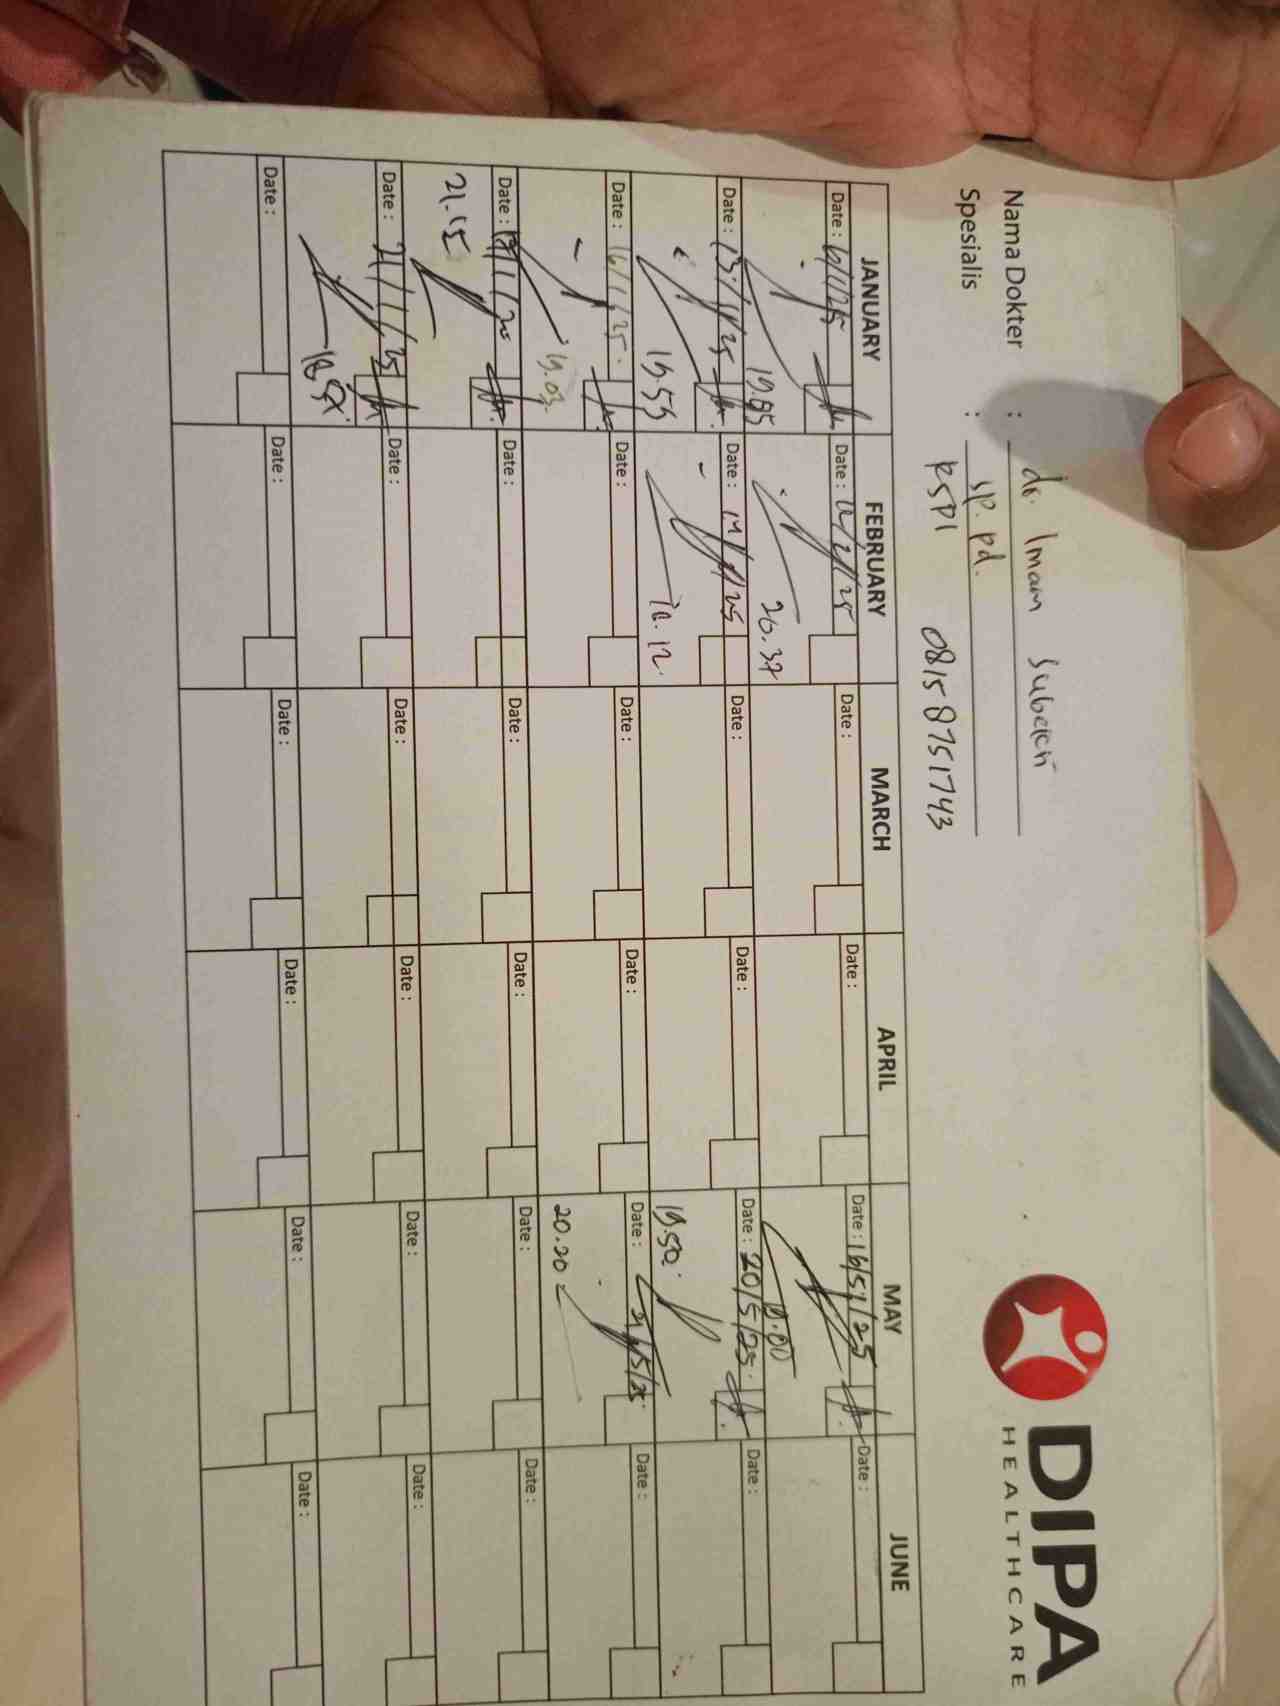 DIPA
HEALTHCARE
Nama Dokter : dr. Imam Subekti
Spesialis : sp. pd.
RSPI 0815 8751743
JANUARY FEBRUARY MARCH APRIL MAY JUNE
Date : 6/1/25 Date : Date : Date : Date : 16/5/25 Date :
19.05 20.37 19.00
Date : 13/1/25 Date : Date : Date : Date : 20/5/25 Date :
19.55 18.12 19.50
Date : 16/1/25 Date : Date : Date : Date : 21/5/25 Date :
19.03 20.20
Date : Date : Date : Date : Date : Date :
21.15
Date : 21/1/25 Date : Date : Date : Date : Date :
Date : Date : Date : Date : Date : Date :